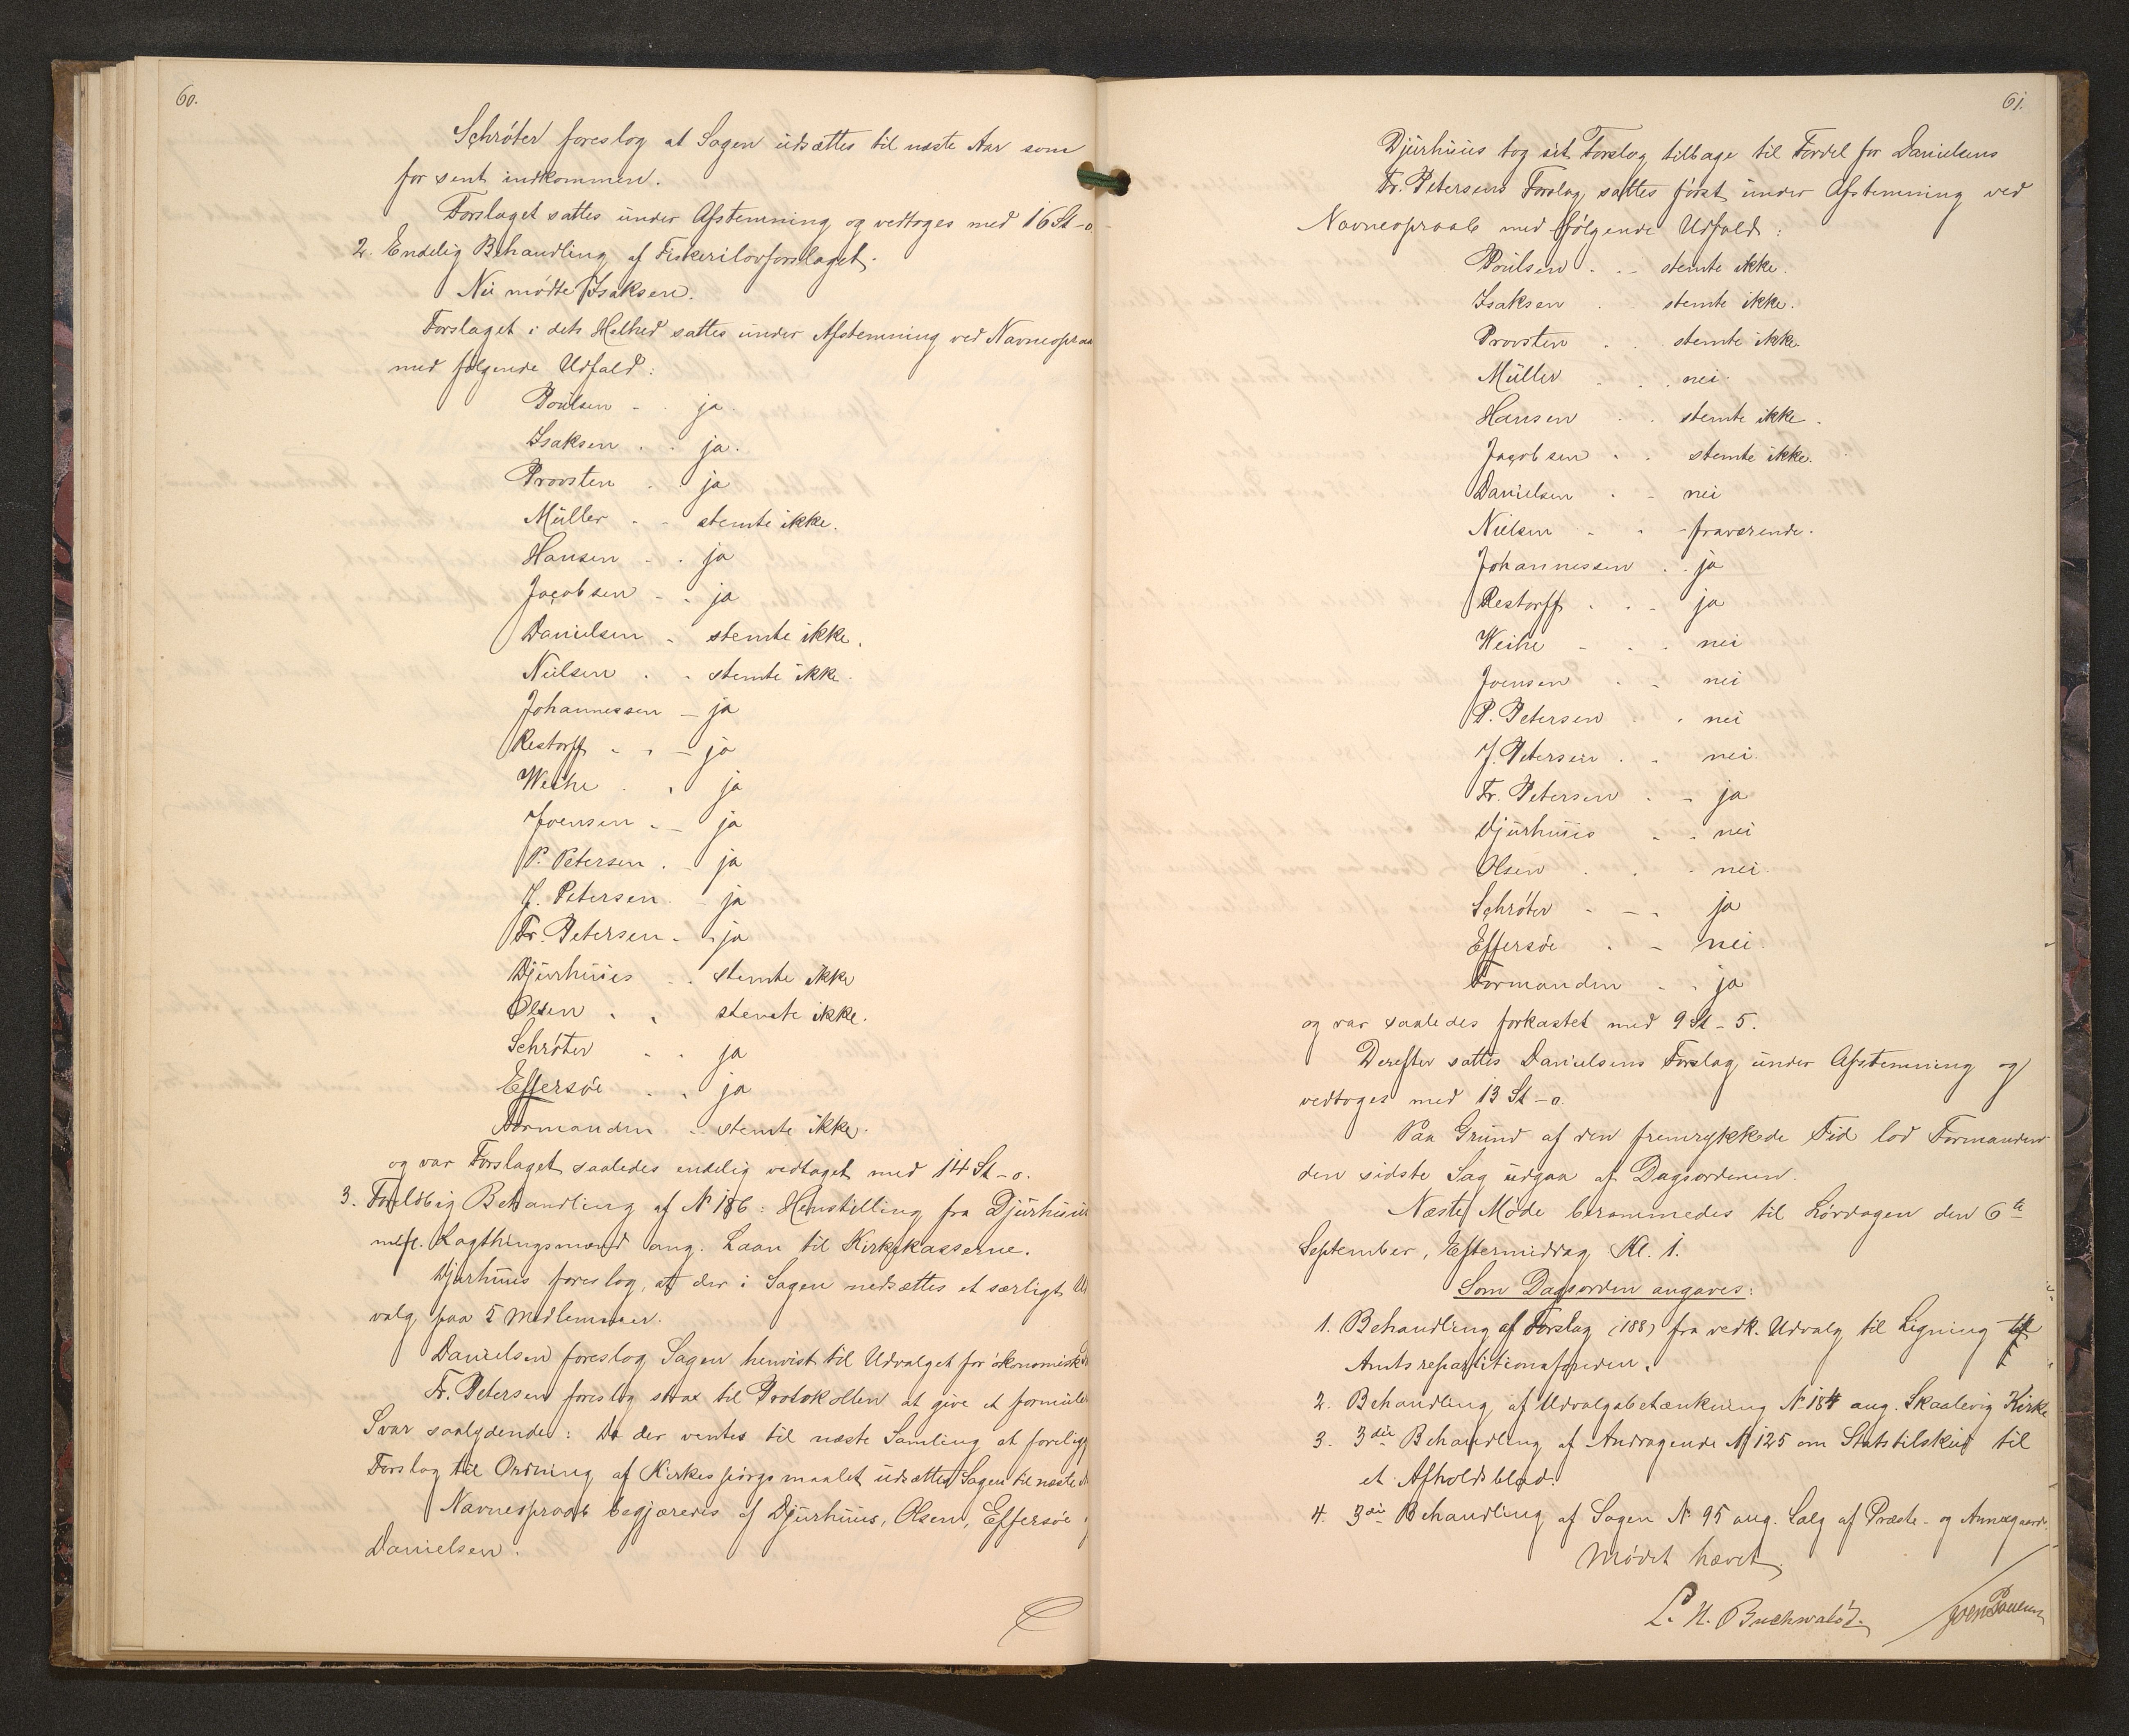 60.
Schröter foreslog at Sagen udsættes til næste Aar som
for sent indkommen.
Forslaget sattes under Afstemning og vedtoges med 16 St - o
2. Endelig Behandling af Fiskerilovforslaget.
Nu mødte Isaksen.
Forslaget i dets Helhed sattes under Afstemning ved Navneopraa
med følgende Udfald:
Poulsen - . ja.
Isaksen . . ja.
Provsten . . ja
Müller - - stemte ikke.
Hansen - . ja
Jacobsen - . ja
Danielsen - stemte ikke.
Nielsen . . stemte ikke.
Johannessen - ja
Restorff - . - ja
Weihe . . ja
Joensen . - ja
P. Petersen . ja
J. Petersen. - ja
Fr. Petersen. - ja
Djurhuus . . stemte ikke
Olsen . . stemte ikke.
Schröter . . ja
Effersøe . . ja
Formanden . . stemte ikke.
og var Forslaget saaledes endelig vedtaget med 14 St - o.
3. Foreløbig Behandling af N 186: Henstilling fra Djurhuus
m fl. Lagthingsmænd ang. Laan til Kirkekasserne.
Djurhuus foreslog, at der i Sagen nedsættes et særligt U
valg paa 5 Medlemmer.
Danielsen foreslog Sagen henvist til Udvalget for økonomisk
Fr. Petersen foreslog strax til Protokollen at give et formule
Svar saalydende: Da der ventes til næste Samling at forelig
Forslag til Ordning af Kirkespørgsmaalet udsættes Sagen til næste
Navneopraab begjæredes af Djurhuus, Olsen, Effersøe
Danielsen.
61.
Djurhuus tog sit Forslag tilbage til Fordel for Danielsens
Fr. Petersens Forslag sattes først under Afstemning ved
Navneopraab med følgende Udfald:
Poulsen . . - stemte ikke.
Isaksen . stemte ikke.
Provsten . . stemte ikke
Müller - . . nei.
Hansen . . stemte ikke.
Jacobsen . . stemte ikke.
Danielsen . - nei
Nielsen . . - fraværende.
Johannessen . . ja
Restorff . . - ja
Weihe - . . nei
Joensen . - nei
P. Petersen . . nei
J. Petersen . . nei.
Fr. Petersen . - ja
Djurhuus . . nei
Olsen . . . nei.
Schröter - - . ja
Effersøe . - nei.
Formanden - . ja
og var saaledes forkastet med 9 St - 5.
Derefter sattes Danielsens Forslag under Afstemning og
vedtoges med 13 St - o.
Paa Grund af den fremrykkede Tid lod Formanden
den sidste Sag udgaa af Dagsordenen.
Næste Møde berammedes til Lørdagen den 6te
September, Eftermiddag Kl. 1.
Som Dagsorden angaves:
1. Behandling af Forslag (188) fra vedk. Udvalg til Ligning til
Amtsrepartitionsfonden.
2. Behandling af Udvalgsbetænkning N 184 ang. Skaalevig Kirke
3. 3die Behandling af Andragende N 125 om Statstilskud til
et Afholdsblad.
4. 3die Behandling af Sagen N 95 ang. Salg af Præste- og Annexgaarde.
Mødet hævet.
L. H. Buchwaldt.
Joen Poulsen